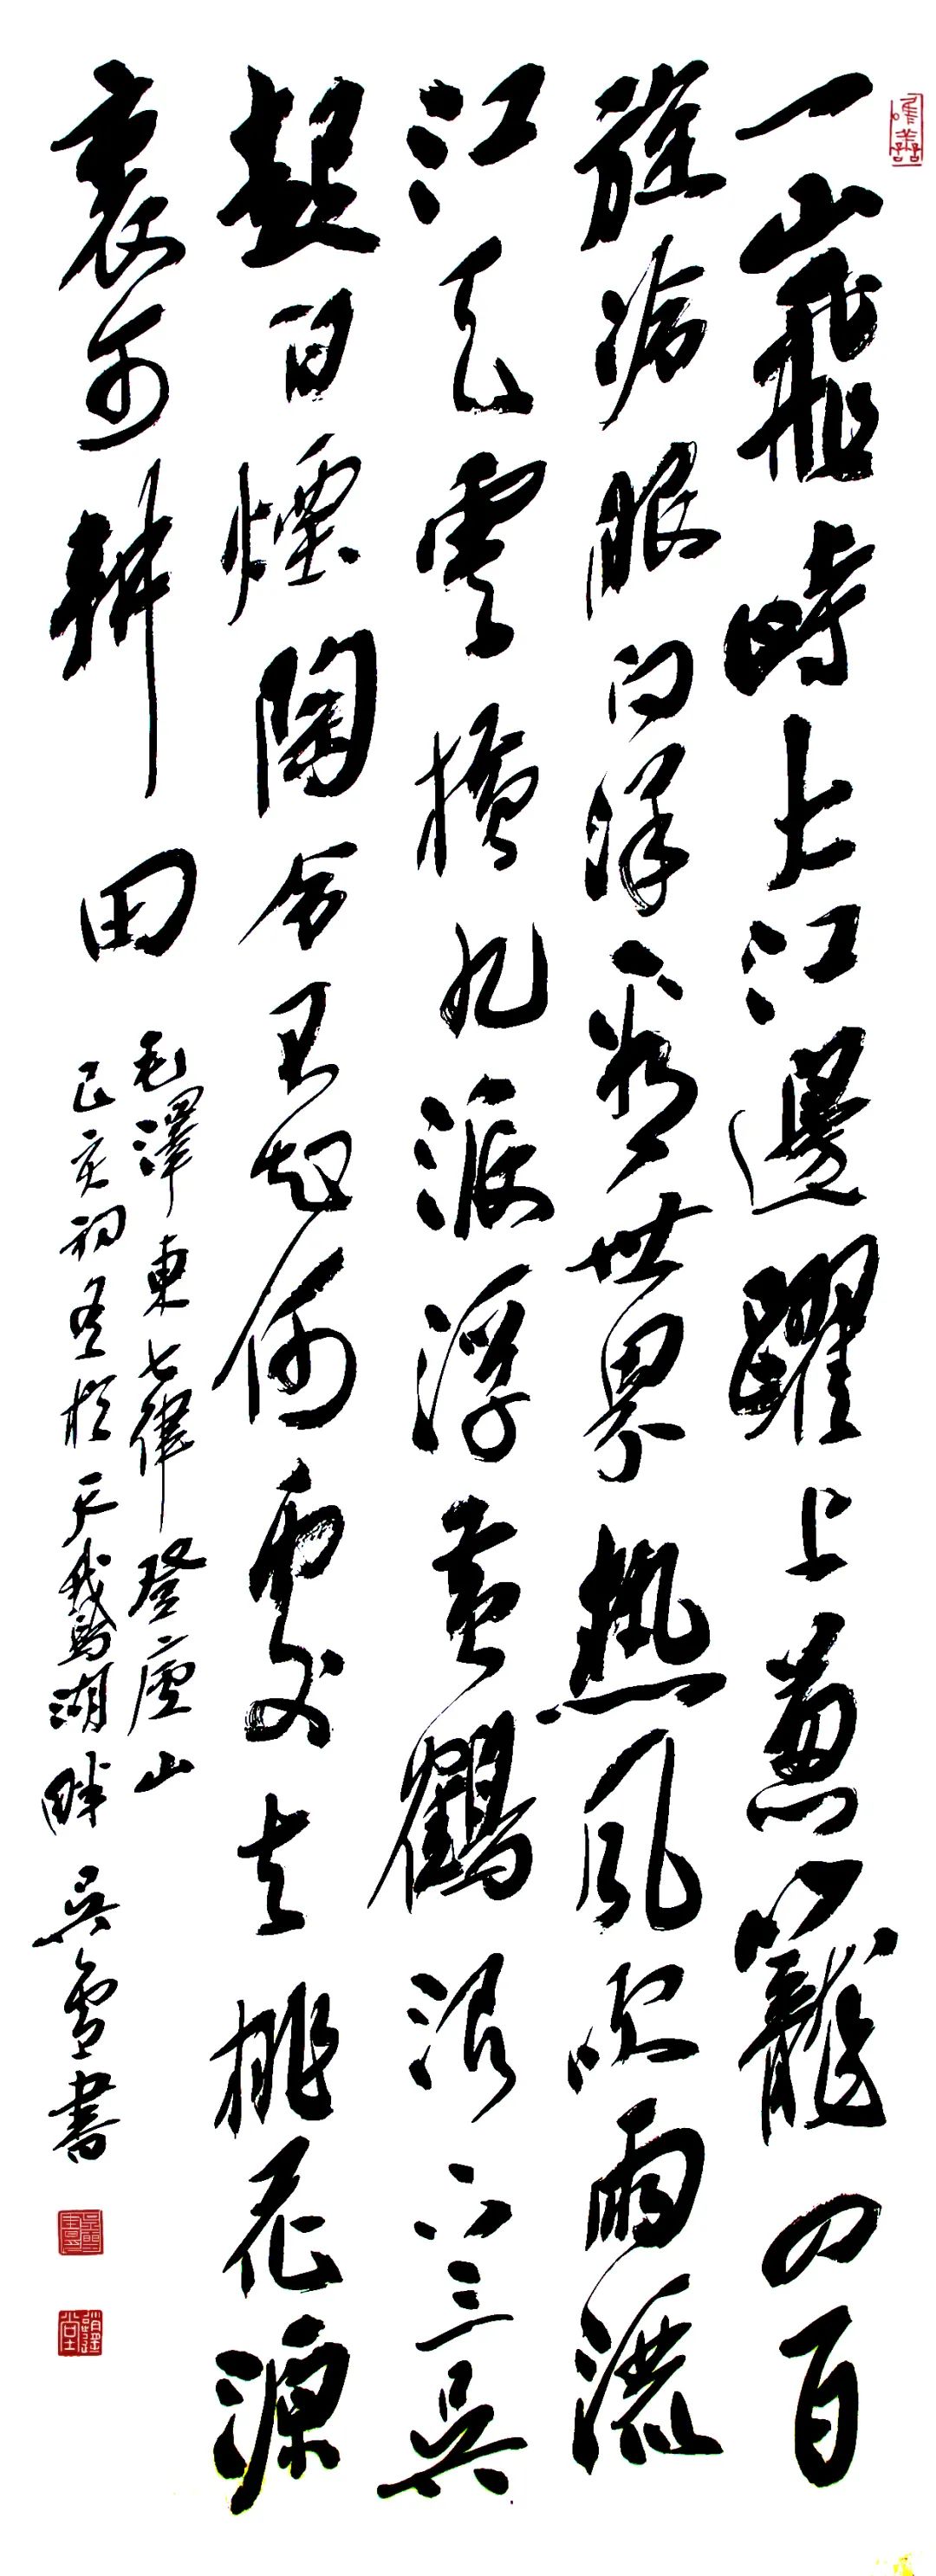 一山飛峙大江邊躍上葱蘢四百
旋冷眼向洋看世界熱風吹雨灑
江天雲橫九派浮黃鶴浪下三吳
起白煙陶令不知何處去桃花源
裏可耕田
毛澤東七律登廬山
己亥初於天鵝湖畔吳雪書